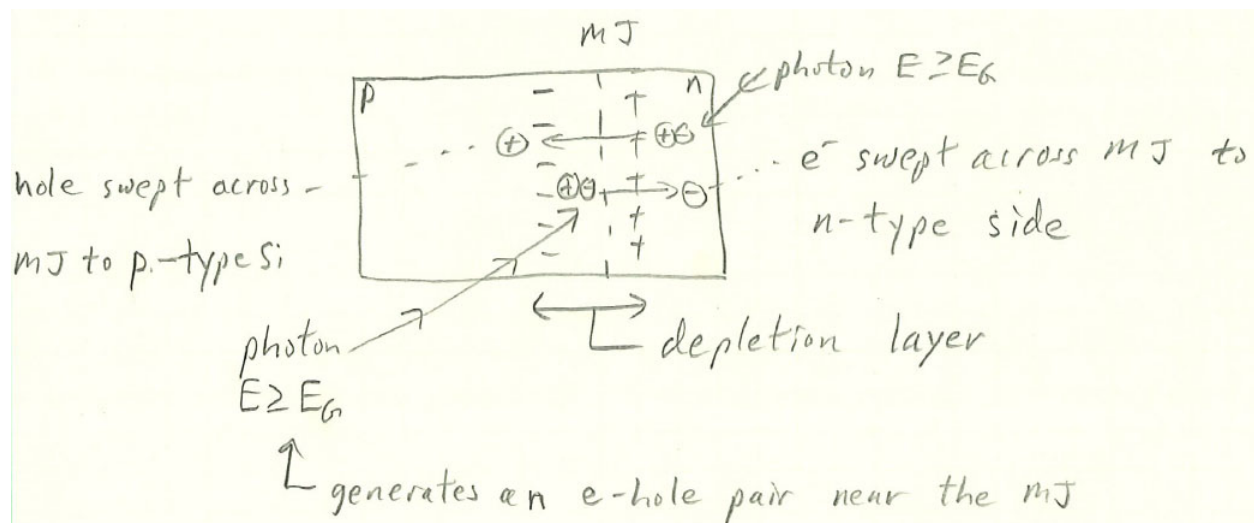 mJ
p
n
photon E≥EG
hole swept across
mJ to p-type Si
e⁻ swept across mJ to
n-type side
photon
E≥EG
depletion layer
generates an e-hole pair near the mJ